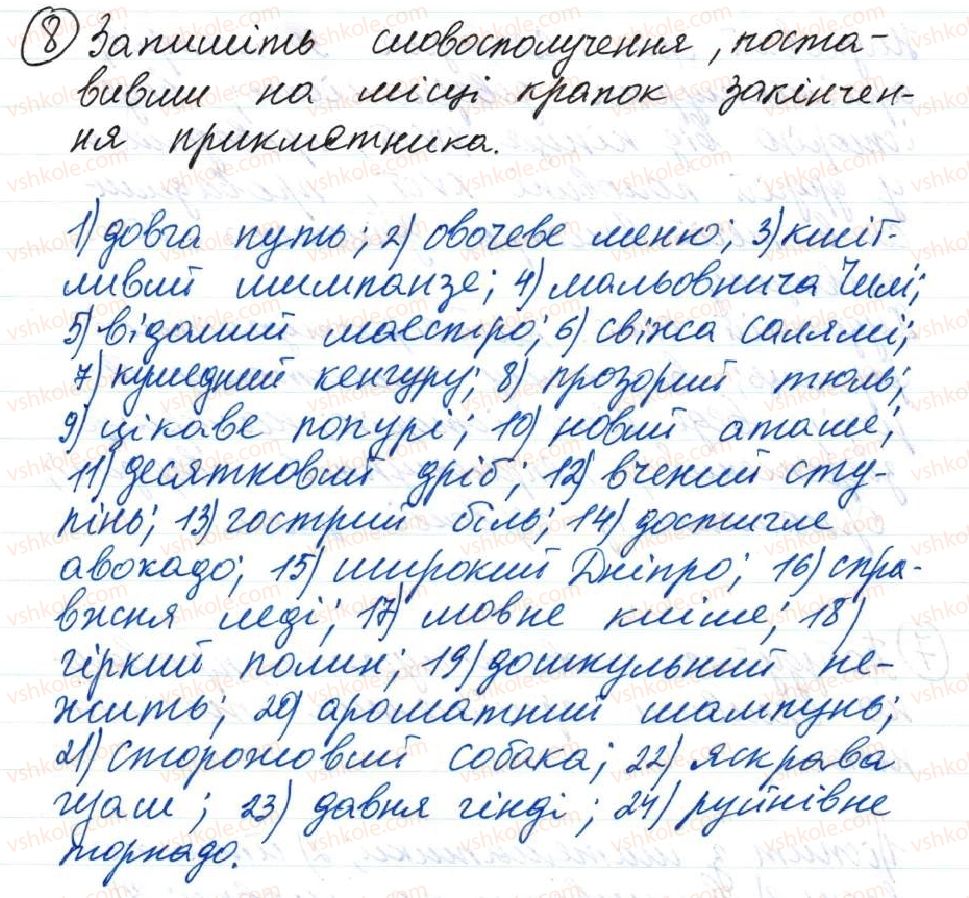 8 Запишіть словосполучення, поста-
вивши на місці крапок закінчен-
ня прикметника.
1) довга путь; 2) овочеве меню; 3) кміт-
ливий шимпанзе; 4) мальовнича Чилі;
5) відомий маестро; 6) свіжа салямі;
7) кумедний кенгуру; 8) прозорий тюль;
9) цікаве попурі; 10) новий аташе;
11) десятковий дріб; 12) вчений сту-
пінь; 13) гострий біль; 14) достигле
авокадо; 15) широкий Дніпро; 16) спра-
вжня леді; 17) мовне кліше; 18)
гіркий полин; 19) дошкульний не-
жить; 20) ароматний шампунь;
21) сторожовий собака; 22) яскрава
гуаш; 23) давня гінді; 24) руйнівне
торнадо.